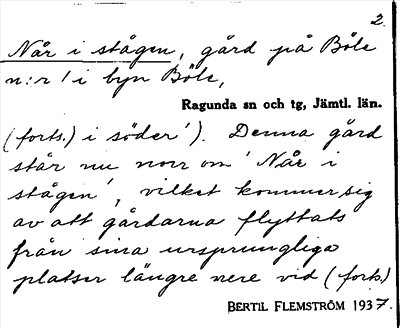 2.
Når i stågen, gård på Böle
n:r 1 i byn Böle,
Ragunda sn och tg, Jämtl. län.
(forts.) i söder'). Denna gård
står nu norr om 'Når i
stågen', vilket kommer sig
av att gårdarna flyttats
från sina ursprungliga
platser längre nere vid (forts.)
BERTIL FLEMSTRÖM 1937.